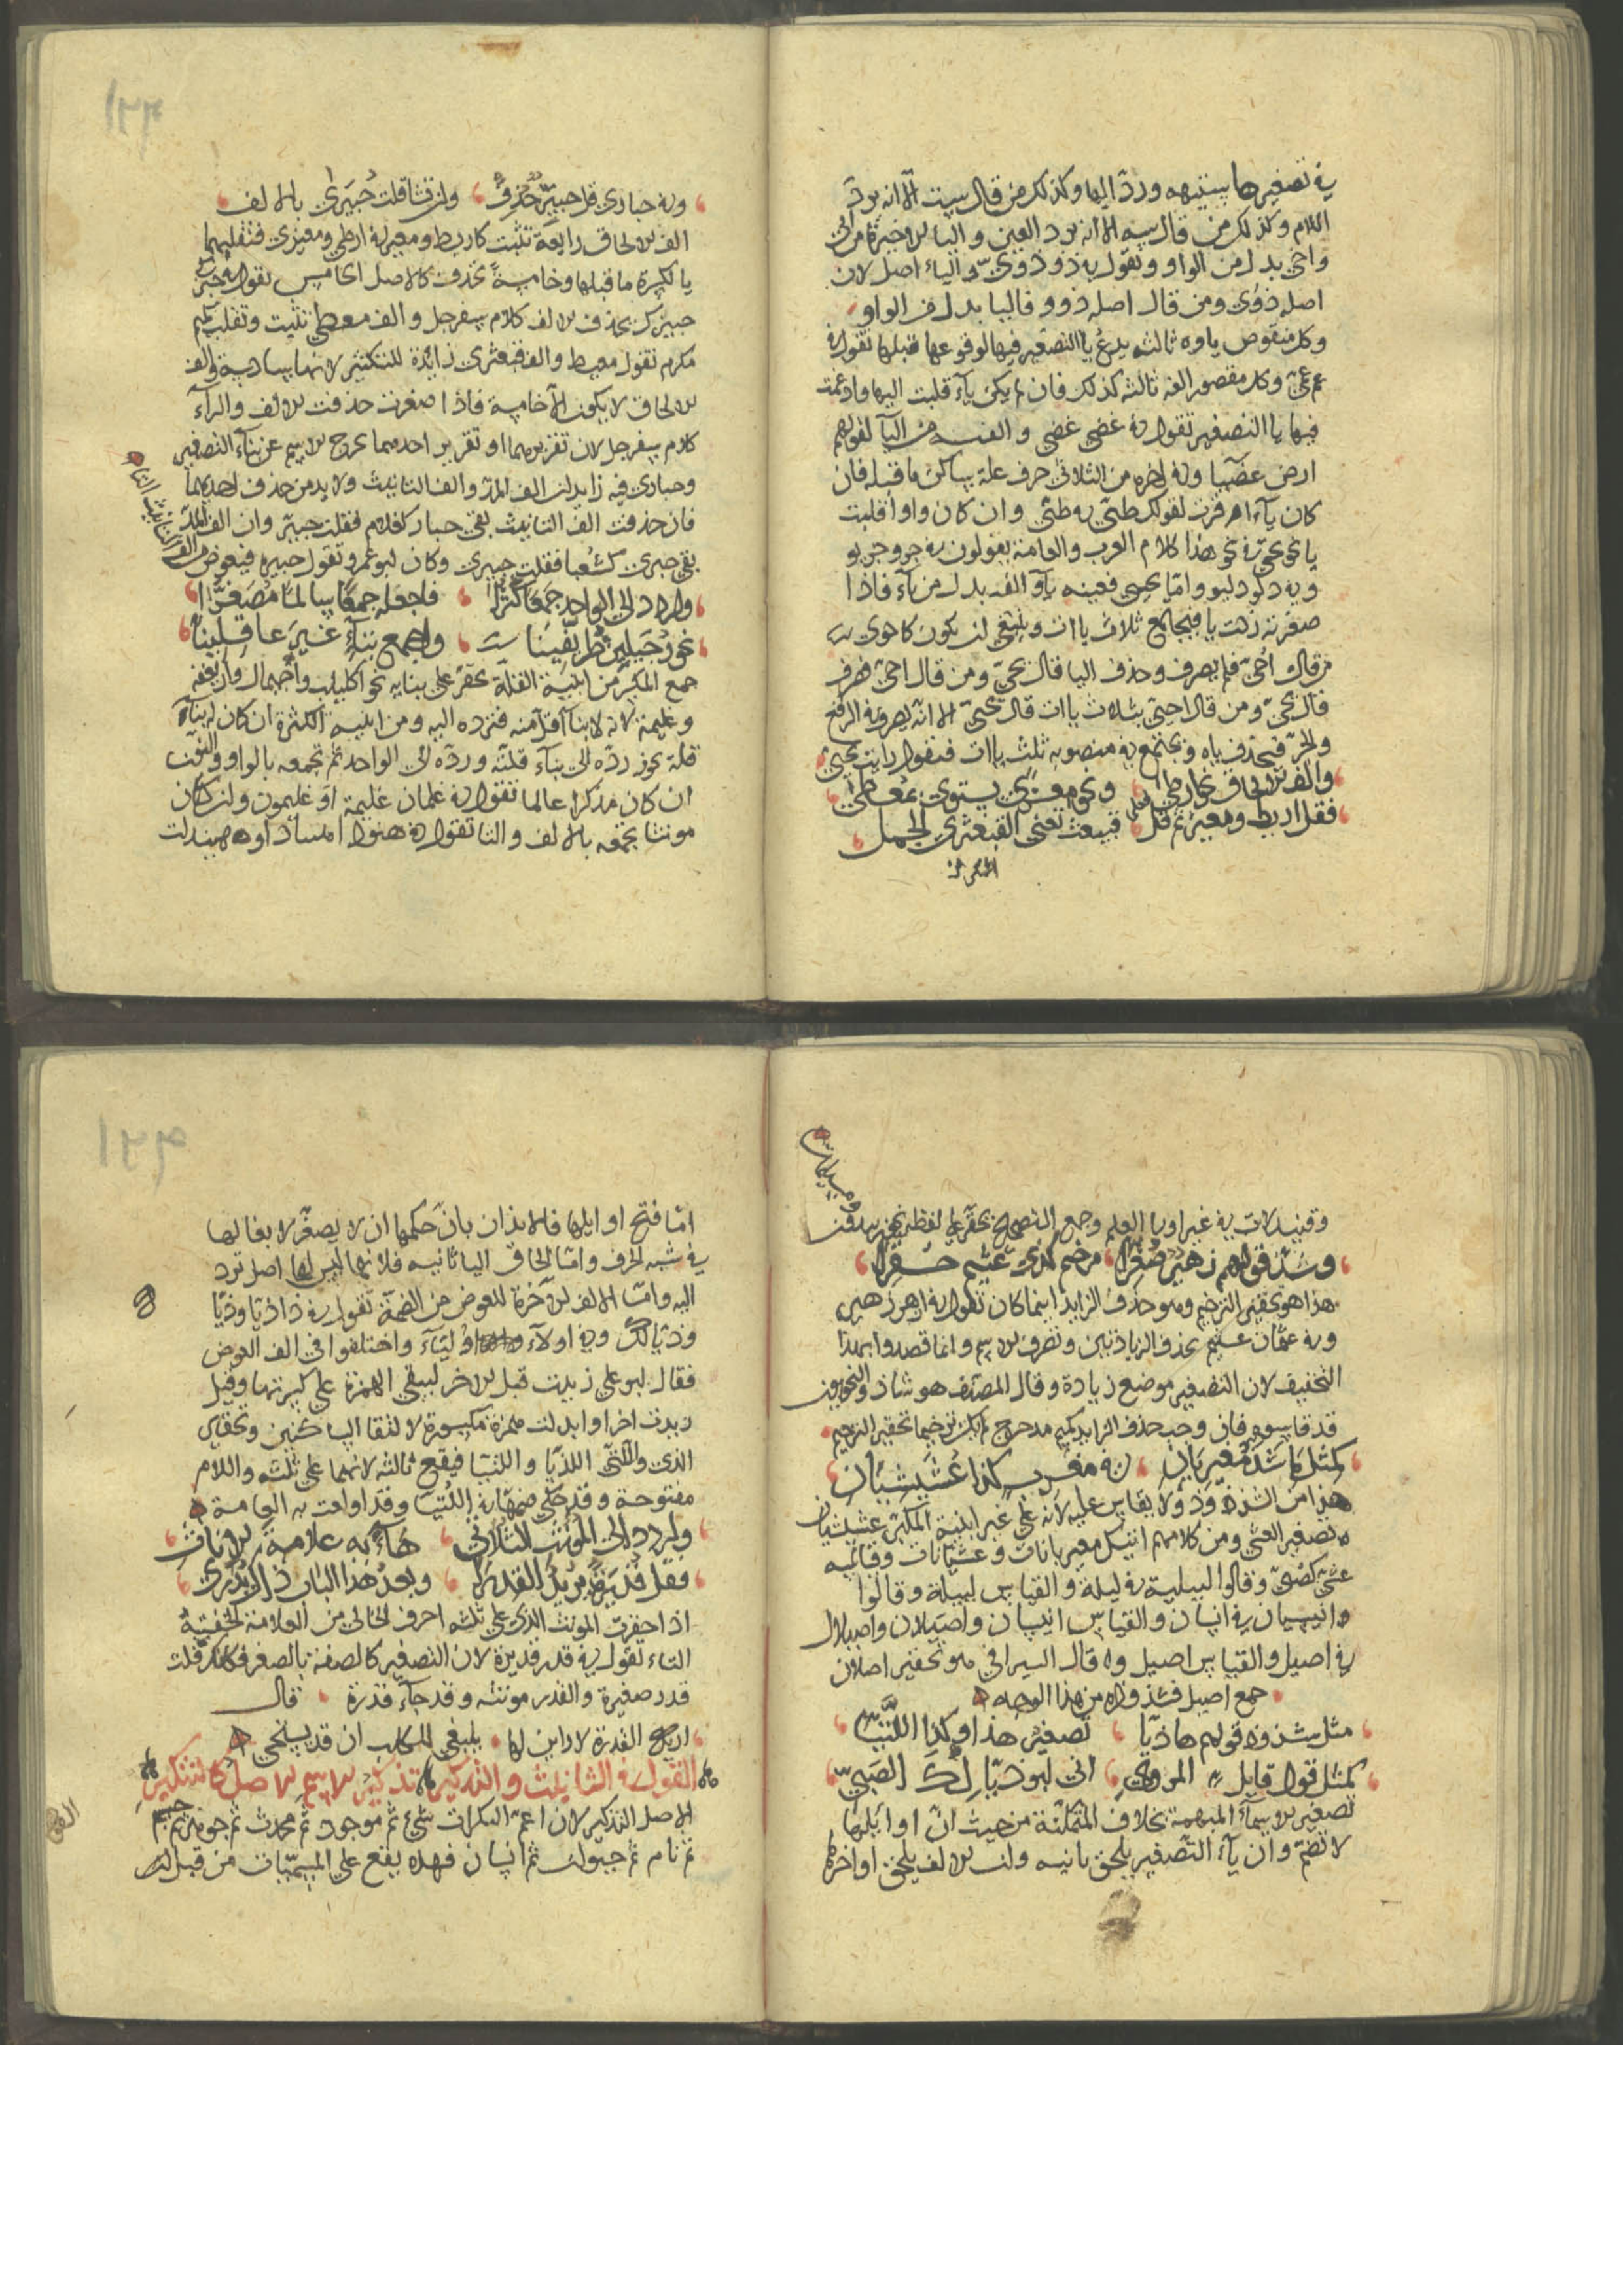 في تصغيرها ستيهه ورد اليها وكذلك من قال ست الا انه يرد
اللام وكذلك من قال سه الا انه يرد العين واليا الاخيرة من
واحي بدل من الواو وتقول في ذو ذوي والياء اصل لان
اصله ذوي ومن قال اصله ذوو فاليا بدل من الواو
وكل منقوص ياوه ثالثه يدغم يا التصغير فيها لوقوعها قبلها تقول في
عم عمي وكل مقصور الفه ثالثه كذلك فان لم يكن ياء قلبت اليها وادغمت
فيها يا التصغير تقول في غضى غضي والفه من اليا لقولهم
ارض غضيا وفي اخره من الثلاثي حرف علة ساكن ما قبله فان
كان ياء اقرت لقولك ظبي في ظبي وان كان واوا قلبت
يا نحو في نحو هذا كلام العرب والعامة يقولون في جرو جريو
وفي دلو دليو واما يحيى فعينه ياء والفه بدل من ياء فاذا
صغرته زدت يا فيجتمع ثلاث ياات وينبغي ان يكون كاحوى
من قال احي فلم يصرف وحذف اليا قال يحي ومن قال احي فصرف
قال يحي ومن قال احيي بثلاث ياات قال يحيي الا انه يصرفه في الرفع
والجر فيحذف ياه ويجتمع في منصوبه ثلث ياات فتقول رايت يحيي
والف الالحاق نحو ارطى ونحو معزى يستوي بمعطى
فقل اريط ومعيز ثم قل قبيعث تعني القبعثرى الجمل
وفي حبارى قل حبير حذف وان تشا قلت حبيرى بالالف
الف الالحاق رابعة تثبت كاريط ومعيز في ارطى ومعزى فتقلبها
يا لكسرة ما قبلها وخامسة تحذف كالاصل الخامس تقول في حبر
حبيرك بحذف الالف كلام سفرجل والف معطى تثبت وتقلب كميم
مكرم تقول معيط والف قبعثرى زايدة للتكثير لانها سادسة والف
الالحاق لا يكون الا خامسة فاذا صغرت حذفت الالف والراء
كلام سفرجل لان تقريرهما او تقرير احدهما يخرج الاسم عن بناء التصغير
وحبارى فيه زايدان الف المد والف التانيث ولا بد من حذف احدهما
فان حذفت الف التانيث بقي حبار كغلام فقلت حبير وان الف المد
والف التانيث اثبت
بقي حبرى كشعبا فقلت حبيرى وكان ابو عمرو يقول حبيره فيعوض
واردد الى الواحد جمعا كثرا فاجعله جمعا سالما مصغرا
نحو رجيلين ظريفينات واجمع بناء غير عاقلينا
جمع المكسر من ابنية القلة يحقر على بنايه نحو اكيلب واجيمال واريغفه
وغليمة لانه لا بناء اقل منه فترده اليه ومن ابنيه الكثرة ان كان له بناء
قلة يجوز رده الى بناء قلته ورده الى الواحد ثم تجمعه بالواو والنون
ان كان مذكرا عالما تقول في غلمان غليمة او غليمون وان كان
مونثا تجمعه بالالف والتا تقول في
وقنيدلات في غير اولي العلم وجمع التصحيح يحقر على لفظه نحو زيدون
ومسيلمات
وشذ قولهم زهير صغرا مرخم كذي عثيم حقرا
هذا هو تحقير الترخيم وهو حذف الزايد اينما كان تقول في ازهر زهير
وفي عثمان عثيم بحذف الزيادتين وتصرف الاسم وانما قصدوا بهذا
التخفيف لان التصغير موضع زيادة وقال المصنف هو شاذ والنحويون
قد قاسوه فان وجب حذف الزايد كميم مدحرج لم يكن ترخيما تحقير الترخيم
كمثل ما شذ مغيربان في مغرب كذا عشيشيان
هذا من الشذوذ ولا يقاس عليه لانه على غير ابنية المكبر عشيشيان
تصغير العشي ومن كلامهم اتيتك مغيربانات وعشيانات وقياسه
عشي كصبي وقالوا لييلية في ليلة والقياس لييلة وقالوا
انيسيان في انسان والقياس انيسان واصيلان واصيلال
في اصيل والقياس اصيل قال السيرافي هو تحقير اصلان
جمع اصيل فشذوذه من هذا الوجه
مثل شذوذ قولهم هاذيا تصغير هذا وكذا اللتيا
كمثل قول قايل المروي اني ابو ذيالك الصبي
تصغير الاسماء المبهمة بخلاف المتمكنة من حيث ان اوايلها
لا تضم وان ياء التصغير يلحق ثانيه وان الالف يلحق اواخرها
اما فتح اوايلها فللايذان بان حكمها ان لا يصغر لا بقا لها
في شبه الحرف واما الحاق اليا ثانيه فلانها ليس لها اصل ترد
اليه واما الالف الاخرة للعوض من الضمة تقول في ذا ذيا وذيا
وذيالك وفي اولاء اولياء واختلفوا في الف العوض
فقال ابو علي زيدت قبل الاخر ليبقى الهمزة على كسرتها وقيل
زيدت اخرا وابدلت همزة مكسورة لالتقا الساكنين وتحقير
الذي والتي اللذيا واللتيا فيقع ثالثه لانهما على ثلثه واللام
مفتوحة وقد حكي ضمها في اللتيا وقد اولعت به العامة
واردد الى المونث الثلاثي هاء به علامة الاناث
فقل قديرة مريد القدر وبعد هذا الباب
اذا حقرت المونث الذي على ثلثه احرف الخالي من العلامة لحقته
التاء تقول في قدر قديرة لان التصغير كالصفة بالصغر فكانك قلت
قدر صغيرة والقدر مونثه وقد جاء قدرة قال
القول في التانيث والتذكير تذكير الاسم الاصل كالتنكير
الاصل التذكير لان اعم النكرات شيء ثم موجود ثم محدث ثم جوهر ثم جسم
ثم نام ثم حيوان ثم انسان فهذه يقع على المسميات من قبل ان